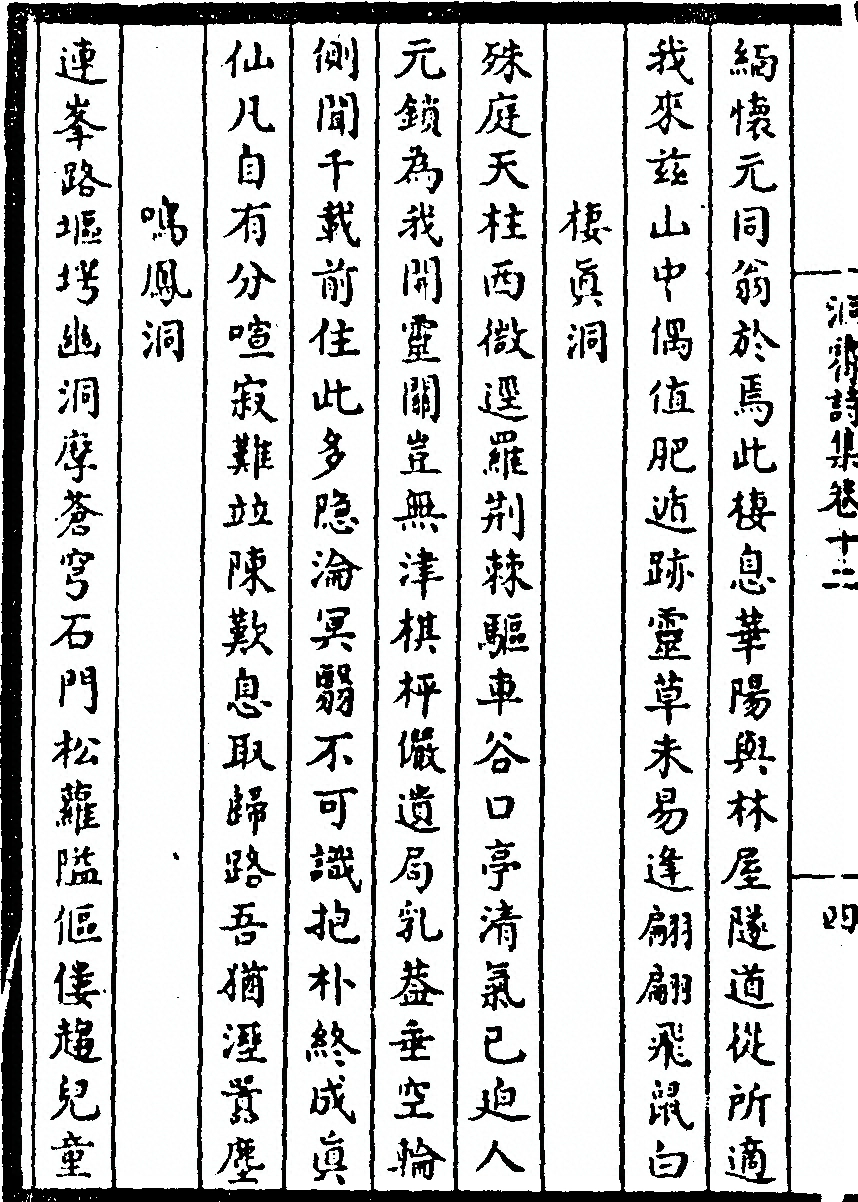 洞霄詩集卷十二
四
緬懷元同翁於焉此棲息華陽與林屋隧道從所適
我來兹山中偶值肥遁跡靈草未易逢翩翩飛鼠白
棲眞洞
殊庭天柱西微逕羅荆棘驅車谷口亭清氣已迫人
元鎖為我開靈關豈無津棋枰儼遺局乳葢垂空輪
側聞千載前住此多隐淪冥翳不可識抱朴終成眞
仙凡自有分喧寂難竝陳歎息取歸路吾猶溼嚣塵
鳴鳳洞
連峯路堀堮幽洞摩蒼穹石門松蘿隘傴僂趨兒童